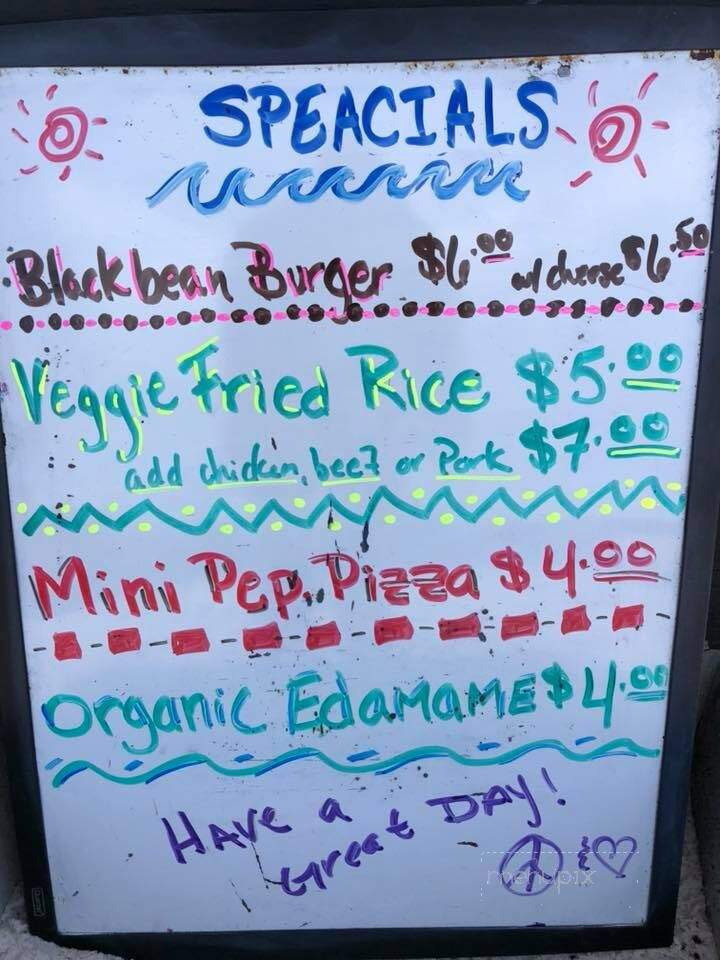 SPEACIALS
Blackbean Burger $6.00 w/ cheese $6.50
Veggie Fried Rice $5.00
add chicken, beef or Pork $7.00
Mini Pep. Pizza $4.00
Organic Edamame $4.00
Have a
Great DAY!
&
menupix